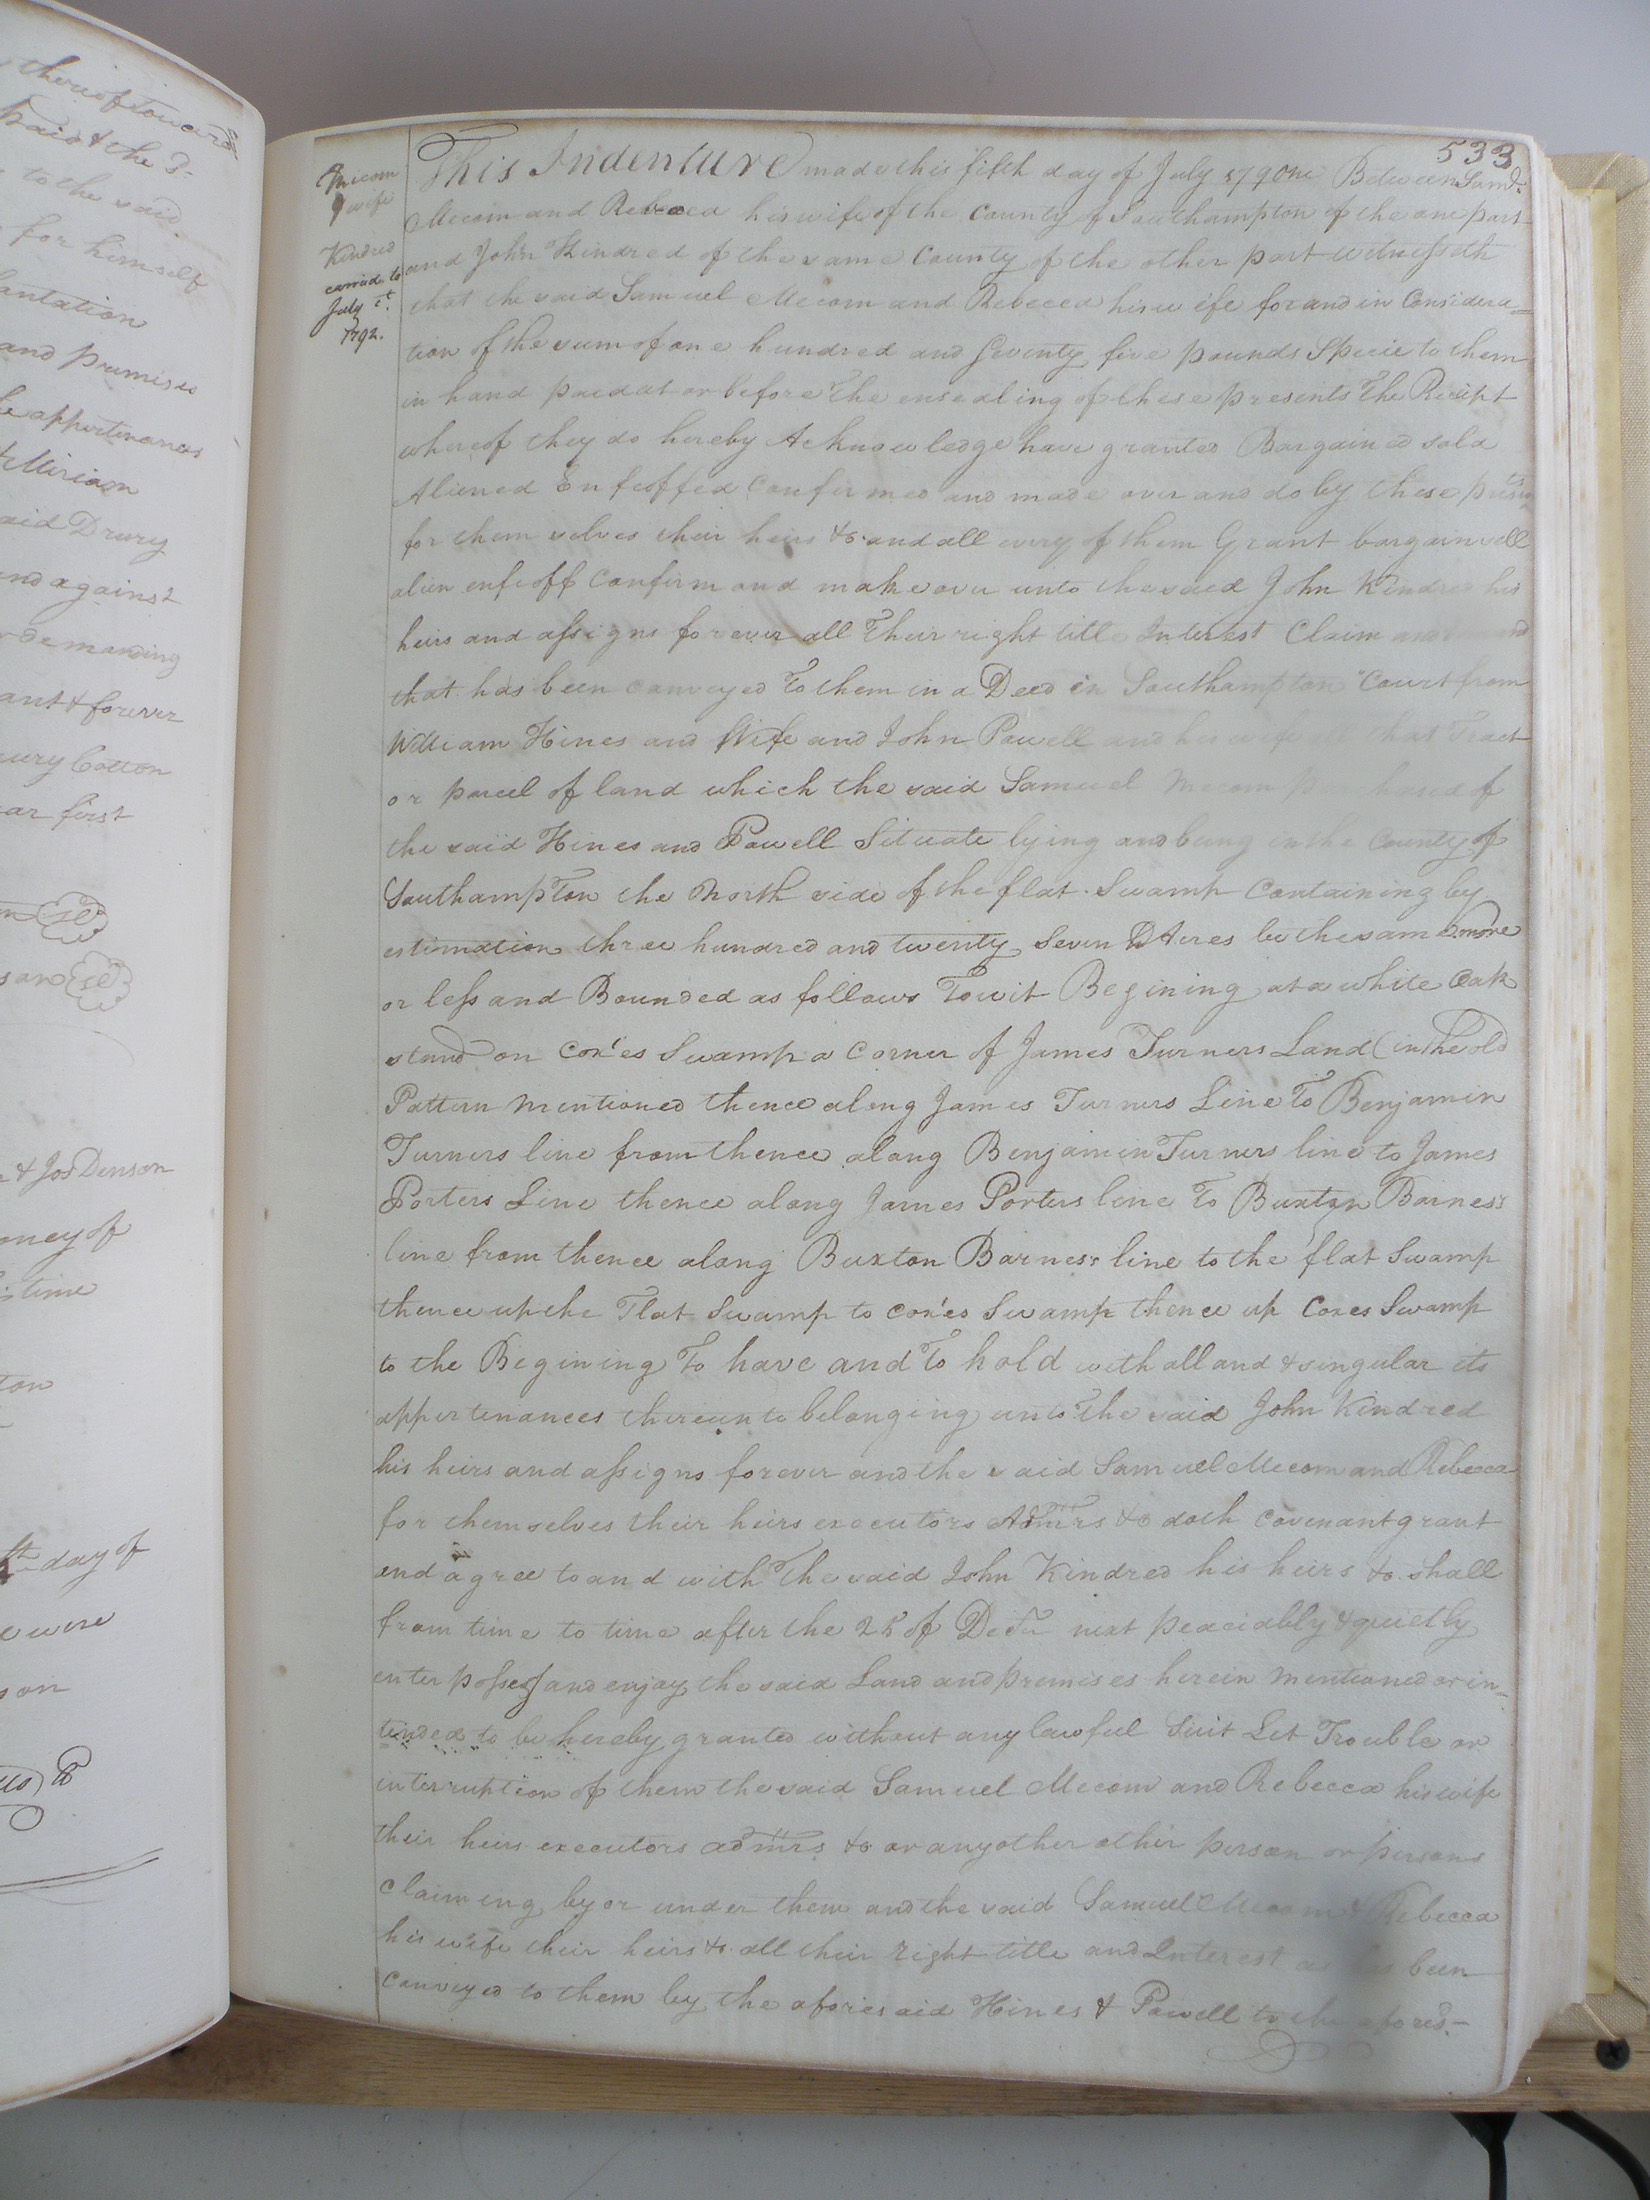 thereof toward
paid & the D.
to the said
for himself
antation
and premises
he appertenances
& Miriam
aid Drury
and against
demanding
ant & forever
ury Cotton
ar first
se
s and se
& Jos Denson
oney of
time
ton
th day of
e were
son
533
Mecom
& wife
Kindred
carried to
July Ct.
1792.
This Indenture made this fifth day of July 1790ne Between Saml.
Mecom and Rebecca his wife of the County of Southampton of the one part
and John Kindred of the same County of the other part witnesseth
that the said Samuel Mecom and Rebecca his wife for and in Considera=
tion of the sum of one hundred and Seventy five pounds Specie to them
in hand paed at or before the ensealing of these presents The Receipt
whereof they do hereby Acknowledge have granted Bargained sold
Aliened Enfeoffed Confirmed and made over and do by these presents
for them selves their heirs &c. and all every of them Grant bargain sell
alien enfeoff Confirm and make over unto the said John Kindred his
heirs and assigns forever all Their right title Interest Claim and
that has been conveyed To them in a Deed in Southampton Court from
William Hines and Wife and John Powell and his wife that Tract
or parcel of land which the said Samuel Mecom purchased of
the said Hines and Powell Situate lying and being in the County of
Southampton the North side of the flat Swamp Containing by
estimation three hundred and twenty Seven Acres be the same more
or less and Bounded as follows Towit Begining at a white Oak
stand on Cox'es Swamp a Corner of James Turners Land (in the old
Pattern Mentioned thence along James Turners Line To Benjamin
Turners line from thence along Benjamin Turners line to James
Porters Line thence along James Porters line To Buxton Barness
line from thence along Buxton Barness line to the flat Swamp
thence up the Flat Swamp to cox'es Swamp thence up Coxes Swamp
to the Begining To have and To hold with all and & singular its
appertenances thereunto belonging unto the said John Kindred
his heirs and assigns forever and the said Samuel Mecom and Rebecca
for themselves their heirs executors Admrs &c doth Covenant grant
and agree to and with The said John Kindred his heirs &c shall
from time to time after the 25 of Decr next peaciably & quietly
enter possess and enjoy the said Land and premises herein mentioned or in=
tended to be hereby granted without any lawful Suit Let Trouble or
interruption of them the said Samuel Mecom and Rebecca his wife
their heirs executors admrs &c or any other other person or persons
Claiming by or under them and the said Samuel Mecom & Rebecca
his wife their heirs &c all their right title and Interest as has been
Conveyed to them by the aforesaid Hines & Powell to the afores.d